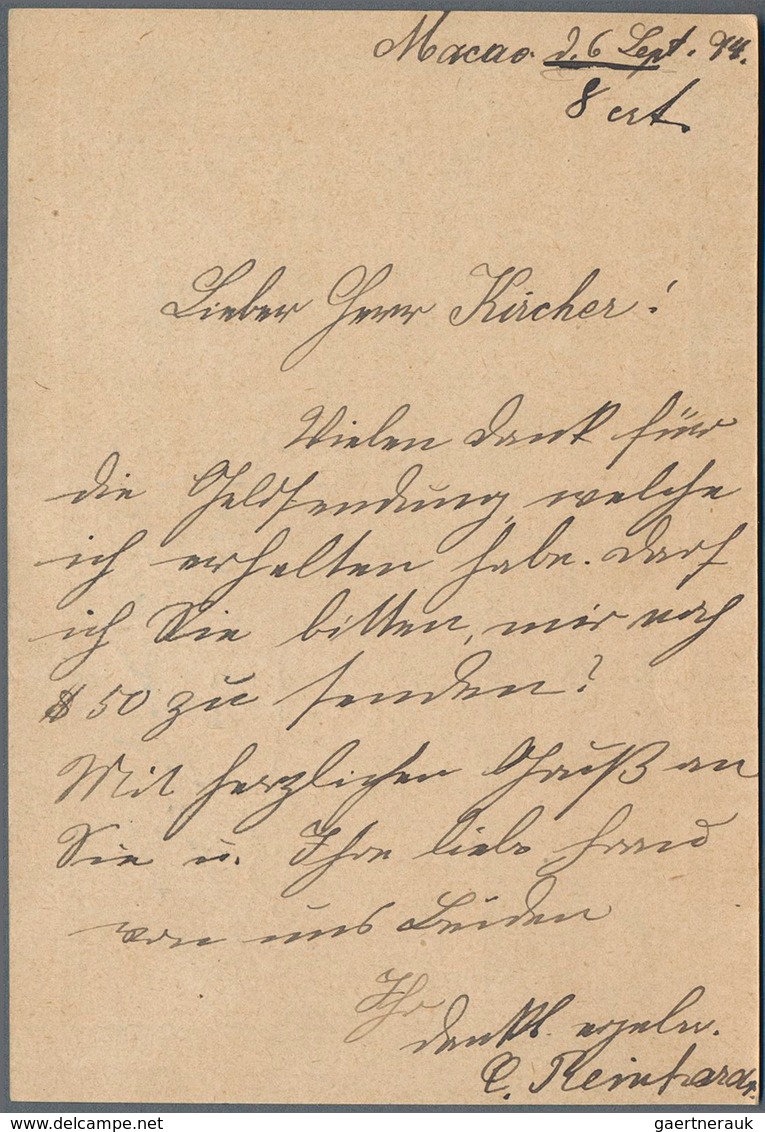 Macao. d. 6 Sept. 94.
8 crt.
Lieber Herr Kircher!
Vielen Dank für
die Geldsendung, welche
ich erhalten habe. Darf
ich Sie bitten, mir noch
$ 50 zu senden?
Mit herzlichen Gruß an
Sie u. Ihre liebe Frau
von uns Beiden
Ihr
dankb. ergeben.
C. Reinhardt.
gaertnerauk